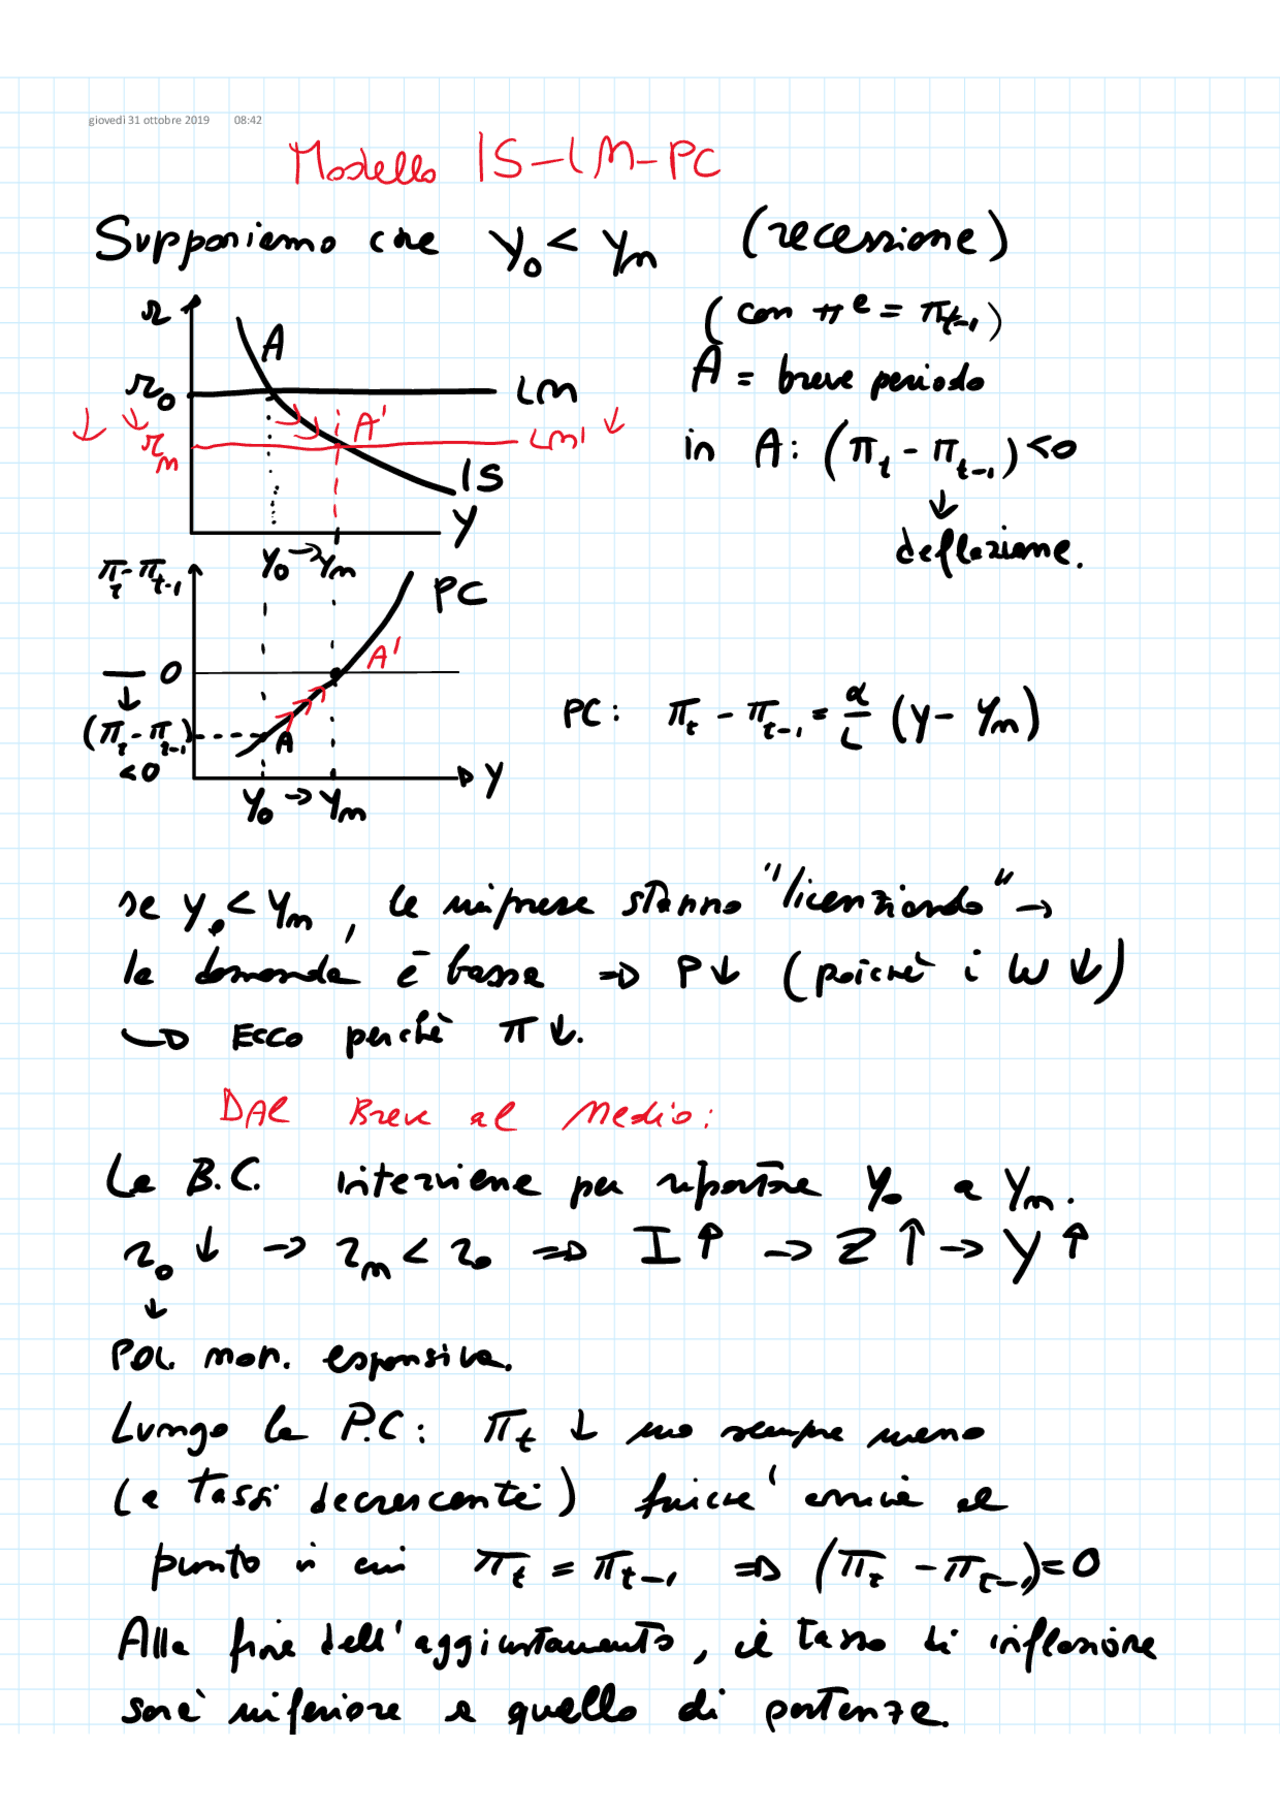 giovedì 31 ottobre 2019 08:42
Modello IS-LM-PC
Supponiamo che Y₀ < Yₙ (recessione)
(con πᵉ = πₜ₋₁)
A = breve periodo
in A: (πₜ - πₜ₋₁) < 0
↓
deflazione.
r
A
r₀ LM
↓ ↓ rₙ A' LM' ↓
IS
Y
Y₀ → Yₙ
πₜ - πₜ₋₁
PC
A'
0
↓
(πₜ - πₜ₋₁) A
< 0
Y
Y₀ → Yₙ
PC: πₜ - πₜ₋₁ = α/L (Y - Yₙ)
se Y₀ < Yₙ, le imprese stanno "licenziando" →
la domanda è bassa ⇒ P↓ (poichè i W ↓)
↪ Ecco perchè π ↓.
DAL Breve al Medio:
La B.C. interviene per riportare Y₀ a Yₙ.
r₀ ↓ → rₙ < r₀ ⇒ I ↑ → Z ↑ → Y ↑
↓
POL. mon. espansiva.
Lungo la P.C: πₜ ↓ ma sempre meno
(a tassi decrescenti) finchè arriva al
punto in cui πₜ = πₜ₋₁ ⇒ (πₜ - πₜ₋₁) = 0
Alla fine dell'aggiustamento, il tasso di inflazione
sarà inferiore a quello di partenza.